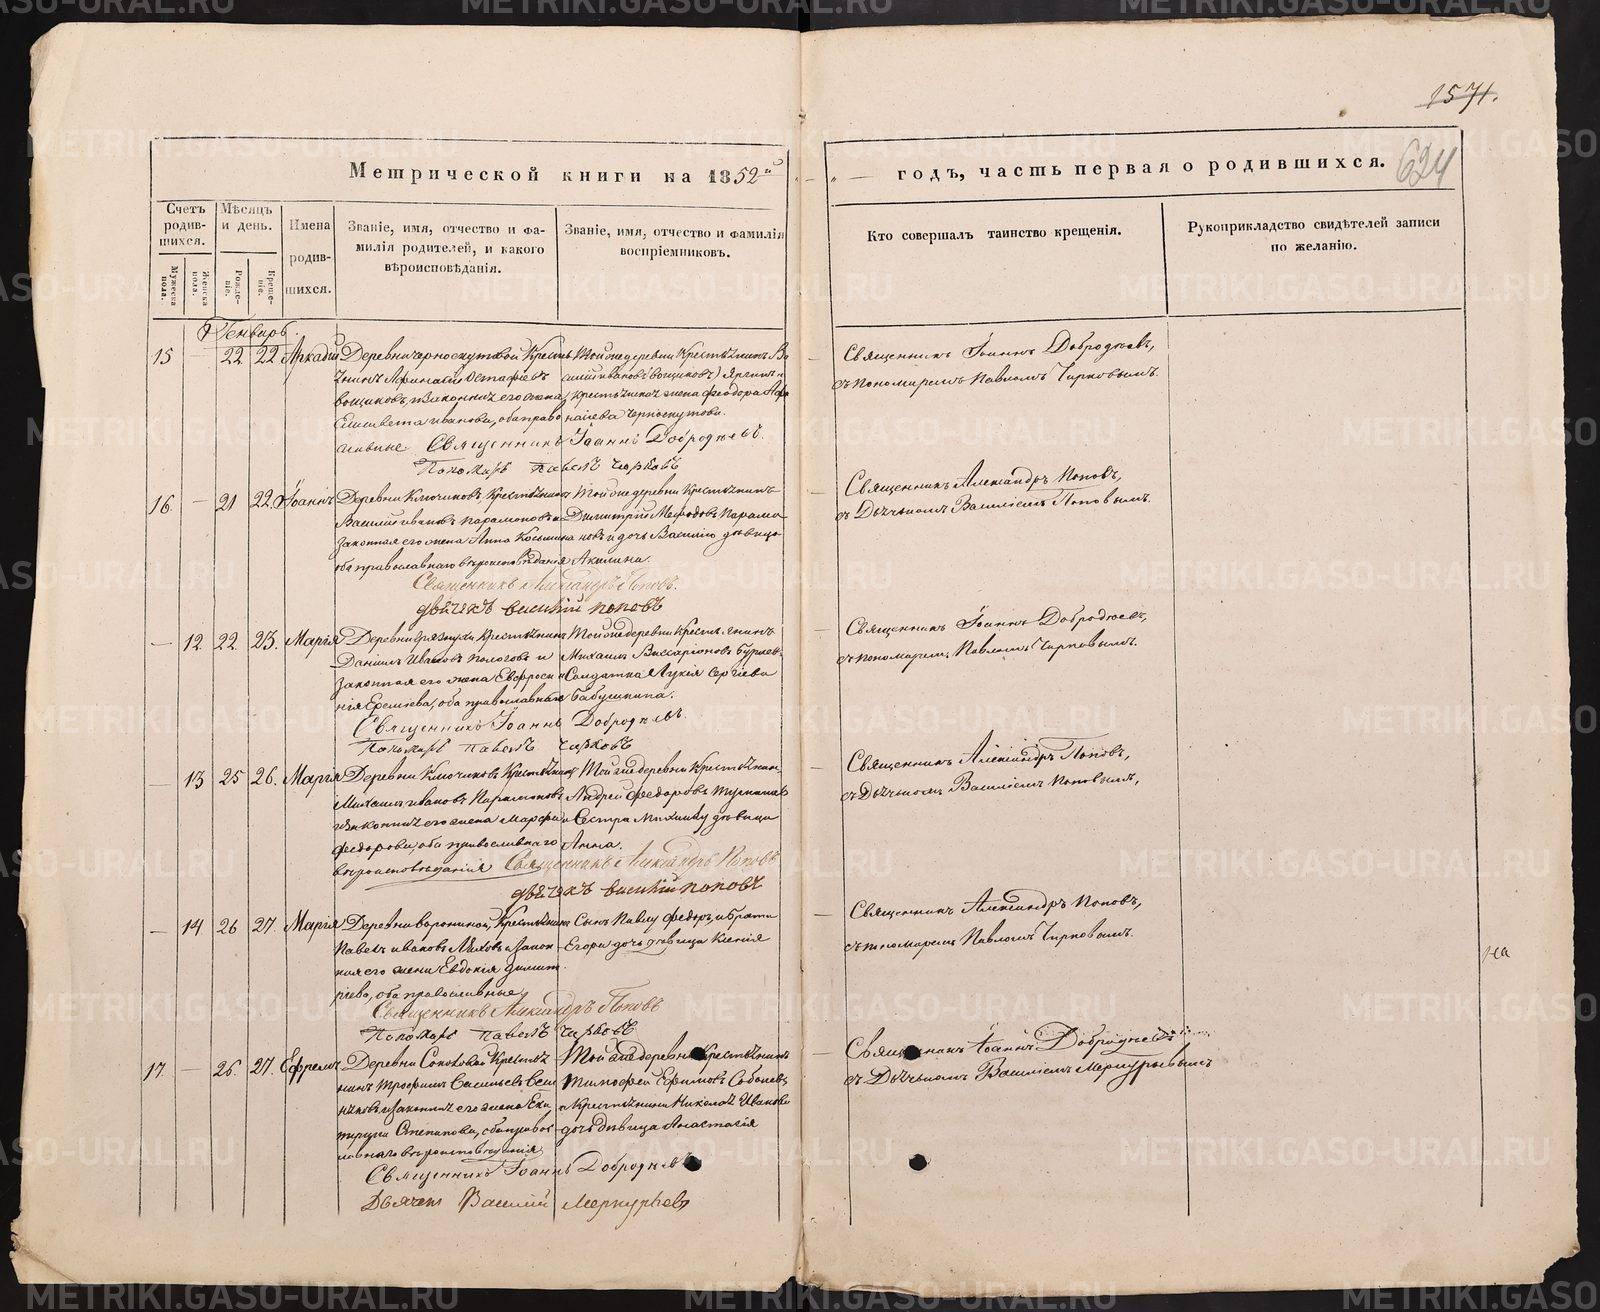 1571.
624
Метрической книги на 1852й
годъ, часть первая о родившихся.
Счетъ родив-шихся.
Мужеска пола.
Женска пола.
Мѣсяцъ и день.
Рожде-ніе.
Креще-ніе.
Имена родив-шихся.
Званіе, имя, отчество и фа-
милія родителей, и какого
вѣроисповѣданія.
Званіе, имя, отчество и фамилія
воспріемниковъ.
Кто совершалъ таинство крещенія.
Рукоприкладство свидѣтелей записи
по желанію.
Генварь.
15 — 22 22 Аркадій
Деревни Черноскутовой Кресть
янинъ Афанасій Остафьевъ
вощиковъ, и законная его жена
Елисавета иванова, оба право
славные
Той же деревни Крестьянинъ Ва
силій ивановъ вощиковъ
крестьянина жена феодора
Черноскутова.
Священникъ Іоаннъ Добродѣевъ.
Пономарь павелъ чирковъ
Священникъ Іоаннъ Добродѣевъ,
съ пономаремъ Павломъ Чирковымъ.
16. — 21 22. Іоаннъ
Деревни Ключиковъ, Крестьянинъ
Василій ивановъ Парамоновъ и
законная его жена Анна Косьмина
оба православнаго вѣроисповѣданія
Той же деревни Крестьянинъ
Димитрій Мефодовъ Парамо
новъ и дочь Василія дѣвица
Акилина.
Священникъ Александръ Поповъ.
дьячекъ василій поповъ
Священникъ Александръ Поповъ,
съ Дьячкомъ Василіемъ Поповымъ.
— 12. 22. 23. Марія
Деревни грязнухи Крестьянинъ
Даніилъ Ивановъ Пологовъ и
законная его жена Евфроси
нія Еремѣева, оба православные
Той же деревни Крестьянинъ
Михаилъ Виссаріоновъ
Солдатка Лукія Сергіева
бабушкина.
Священникъ Іоаннъ Добродѣевъ.
Пономарь павелъ чирковъ
Священникъ Іоаннъ Добродѣевъ,
съ пономаремъ Павломъ Чирковымъ.
— 13 25 26. Марія
Деревни Ключиковъ Крестьянинъ
Михаилъ ивановъ Парамоновъ
и законная его жена Марфа
федорова, оба православнаго
вѣроисповѣданія
Той же деревни Крестьянин
Андрей федоровъ
и Сестра Михаилу дѣвица
Анна.
Священникъ Александръ Поповъ
дьячекъ василій поповъ
Священникъ Александръ Поповъ,
съ Дьячкомъ Василіемъ Поповымъ,
— 14 26 27. Марія
Деревни Ворониной, Крестьянинъ
Павелъ ивановъ Ляховъ и закон
ная его жена Евдокія димит
ріева, оба православные
Сынъ Павлу федоръ, и брата
Егора дочь дѣвица Ксенія
Священникъ Александръ Поповъ
Пономарь павелъ чирковъ
Священникъ Александръ Поповъ,
съ пономаремъ Павломъ Чирковымъ.
на
17. — 26. 27. Ефремъ
Деревни Соколовой Крестья
нинъ Трофимъ Васильевъ
и законная его жена Ека
терина Степанова, оба правос
лавнаго вѣроисповѣданія
Той же деревни Крестьянинъ
Тимофей Ефимовъ Соболевъ
и Крестьянина Николая Иванова
дочь дѣвица Анастасія
Священникъ Іоаннъ Добродѣевъ
Дьячекъ Василій Меркурьевъ
Священникъ Іоаннъ Добродѣевъ
съ Дьячкомъ Василіемъ Меркурьевымъ
METRIKI.GASO-URAL.RU